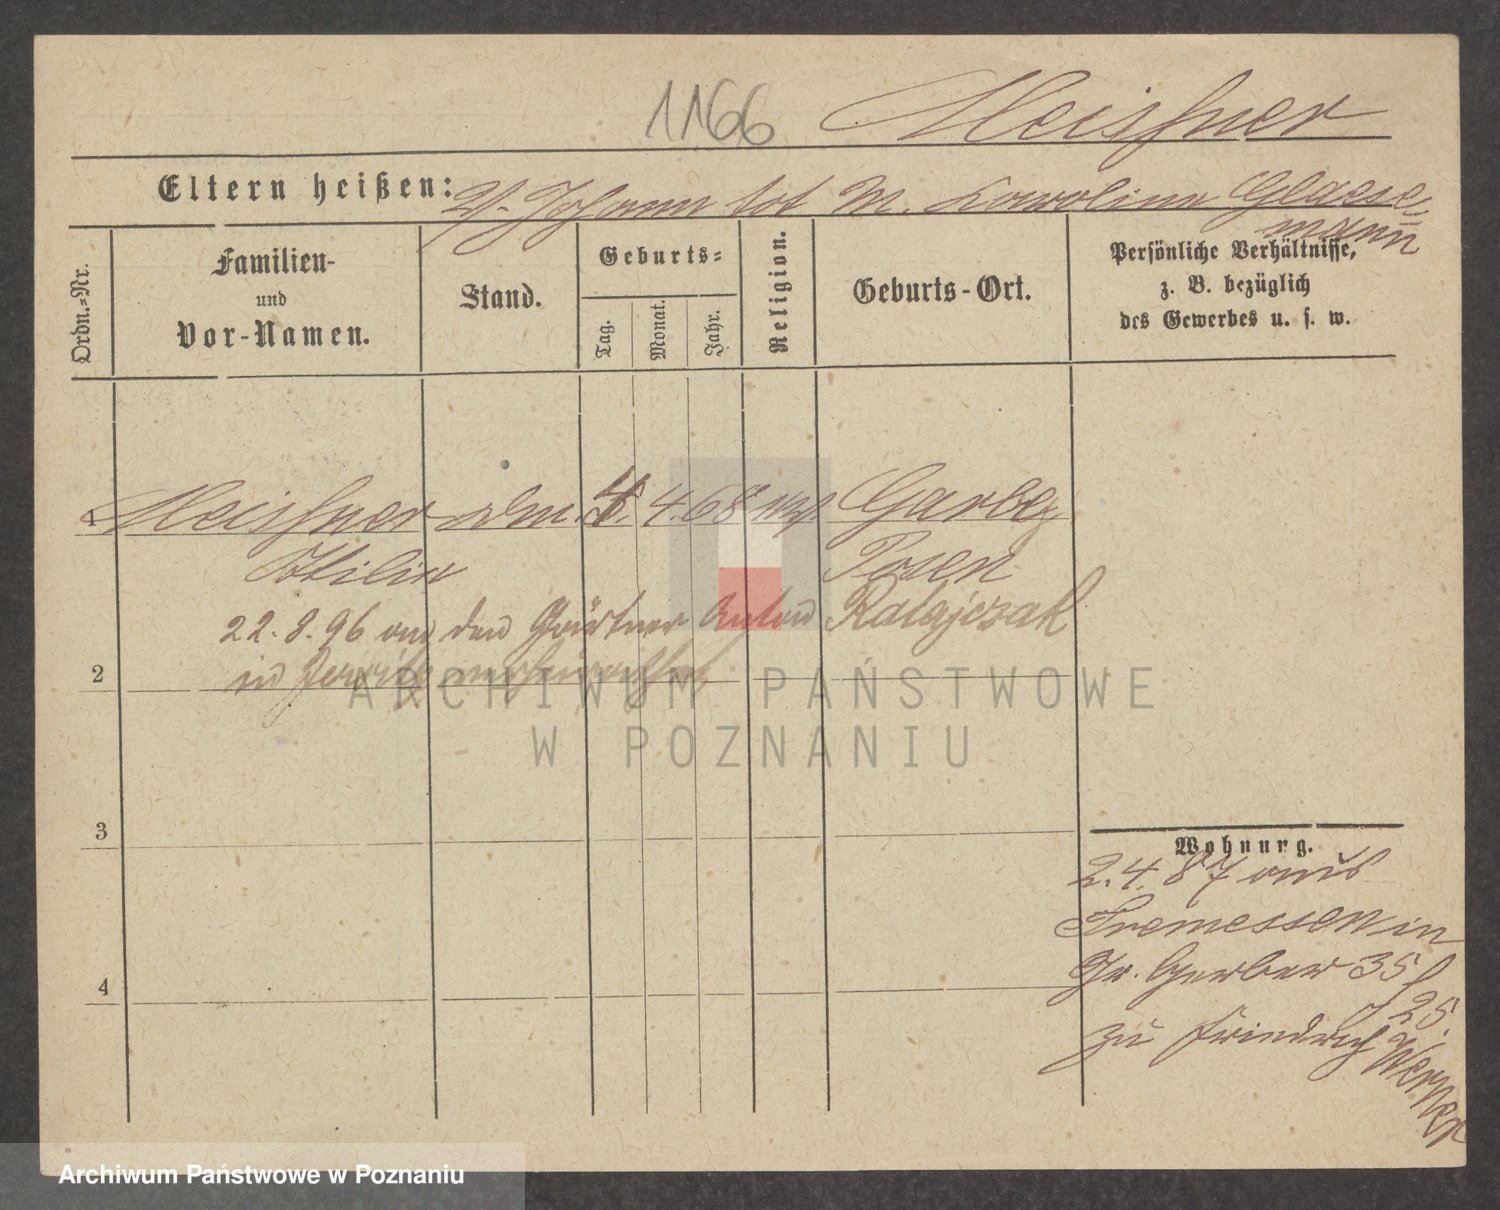 1166 Meissner
Eltern heißen: V. Johann tot M. Karolina Glaese-
mann
Ordn.=Nr.
Familien-
und
Vor-Namen.
Stand.
Geburts=
Tag.
Monat.
Jahr.
Religion.
Geburts-Ort.
Persönliche Verhältnisse,
z. B. bezüglich
des Gewerbes u. s. w.
1 Meissner 4. 4. 68 Garbey
Ottilie Posen
22.8.96 an den Gärtner Anton Ratajczak
2 in verheirathet
ARCHIWUM PAŃSTWOWE
W POZNANIU
3
4
Wohnung.
2.4.87 aus
Tremessen in
Gr. Gerber 35
f 25.
zu Friedrich Werner
Archiwum Państwowe w Poznaniu